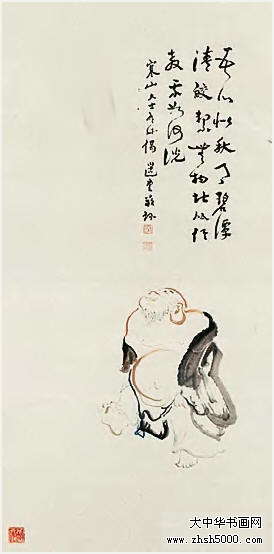 吾心似秋月碧潭
清皎潔無物堪比倫
教我如何說
寒山大士有此偈選堂
大中华书画网
www.zhsh5000.com